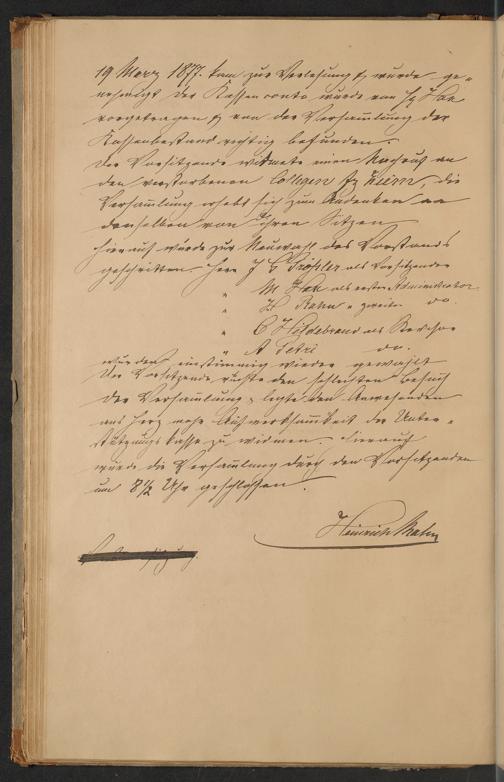 19 März 1877. kam zur Verlesung & wurde ge=
nehmigt der Kassenconto wurde von Hr Hak
vorgetragen & von der Versammlung der
Kassenbestand richtig befunden.
Der Vorsitzende widmete einen Nachruf an
den verstorbenen Collegen Fz Kiem, die
Versammlung erhebt sich zum Andenken an
denselben von ihren Sitzen
Hierauf wurde zur Neuwahl des Vorstands
geschritten. Herr J C Tröster als Vorsitzender
" M Hak als erster Administrator
" H. Rahn " zweiter do.
" C Hildebrand als Revisor
" A Petri do.
wurden einstimmig wieder gewählt
Der Vorsitzende rügte den schlechten Besuch
der Versammlung & legte den Anwesenden
ans Herz mehr Aufmerksamkeit der Unter=
stützungskasse zu widmen. Hierauf
wurde die Versammlung durch den Vorsitzenden
um 8 1/2 Uhr geschlossen.
Heinrich Rahn